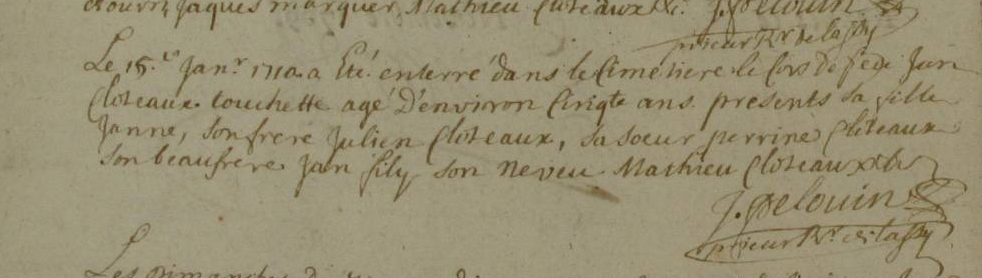 et ouvr, Jaques marquer, Mathieu Cloteaux &c. J. Pelouin
prieur Rr. de lassy
Le 15.e Janr 1710. a Eté enterré dans le Cimetiere le Cors de feu Jan
Cloteaux touchette agé D'environ Cinqte ans. presents sa fille
Janne, son frere Julien Cloteaux, sa soeur perrine Cloteaux
son beaufrere Jan fily son neveu Mathieu Cloteaux &c
J. Pelouin
prieur Rr. de lassy
Les Dimanches